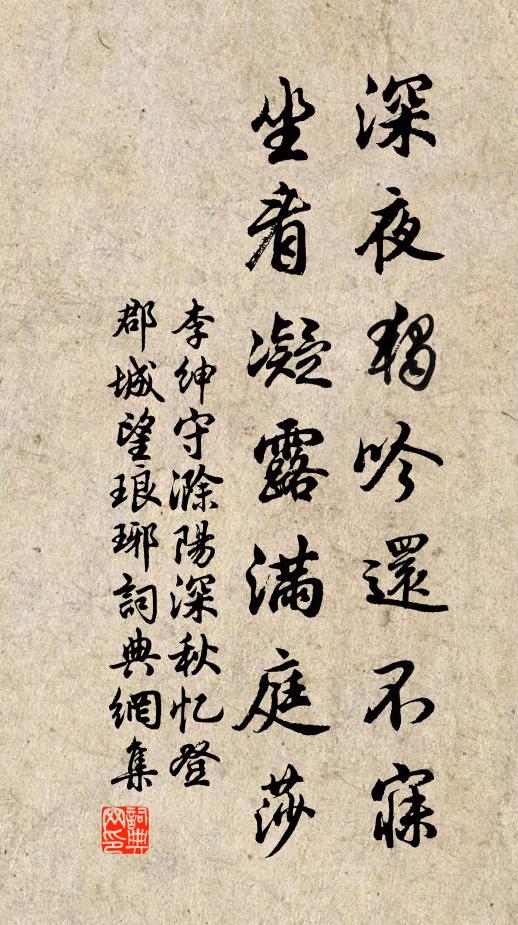 深夜獨吟還不寐
坐看凝露滿庭莎
李紳守滁陽深秋忆登
郡城望琅琊詞典網集
詞典
网印